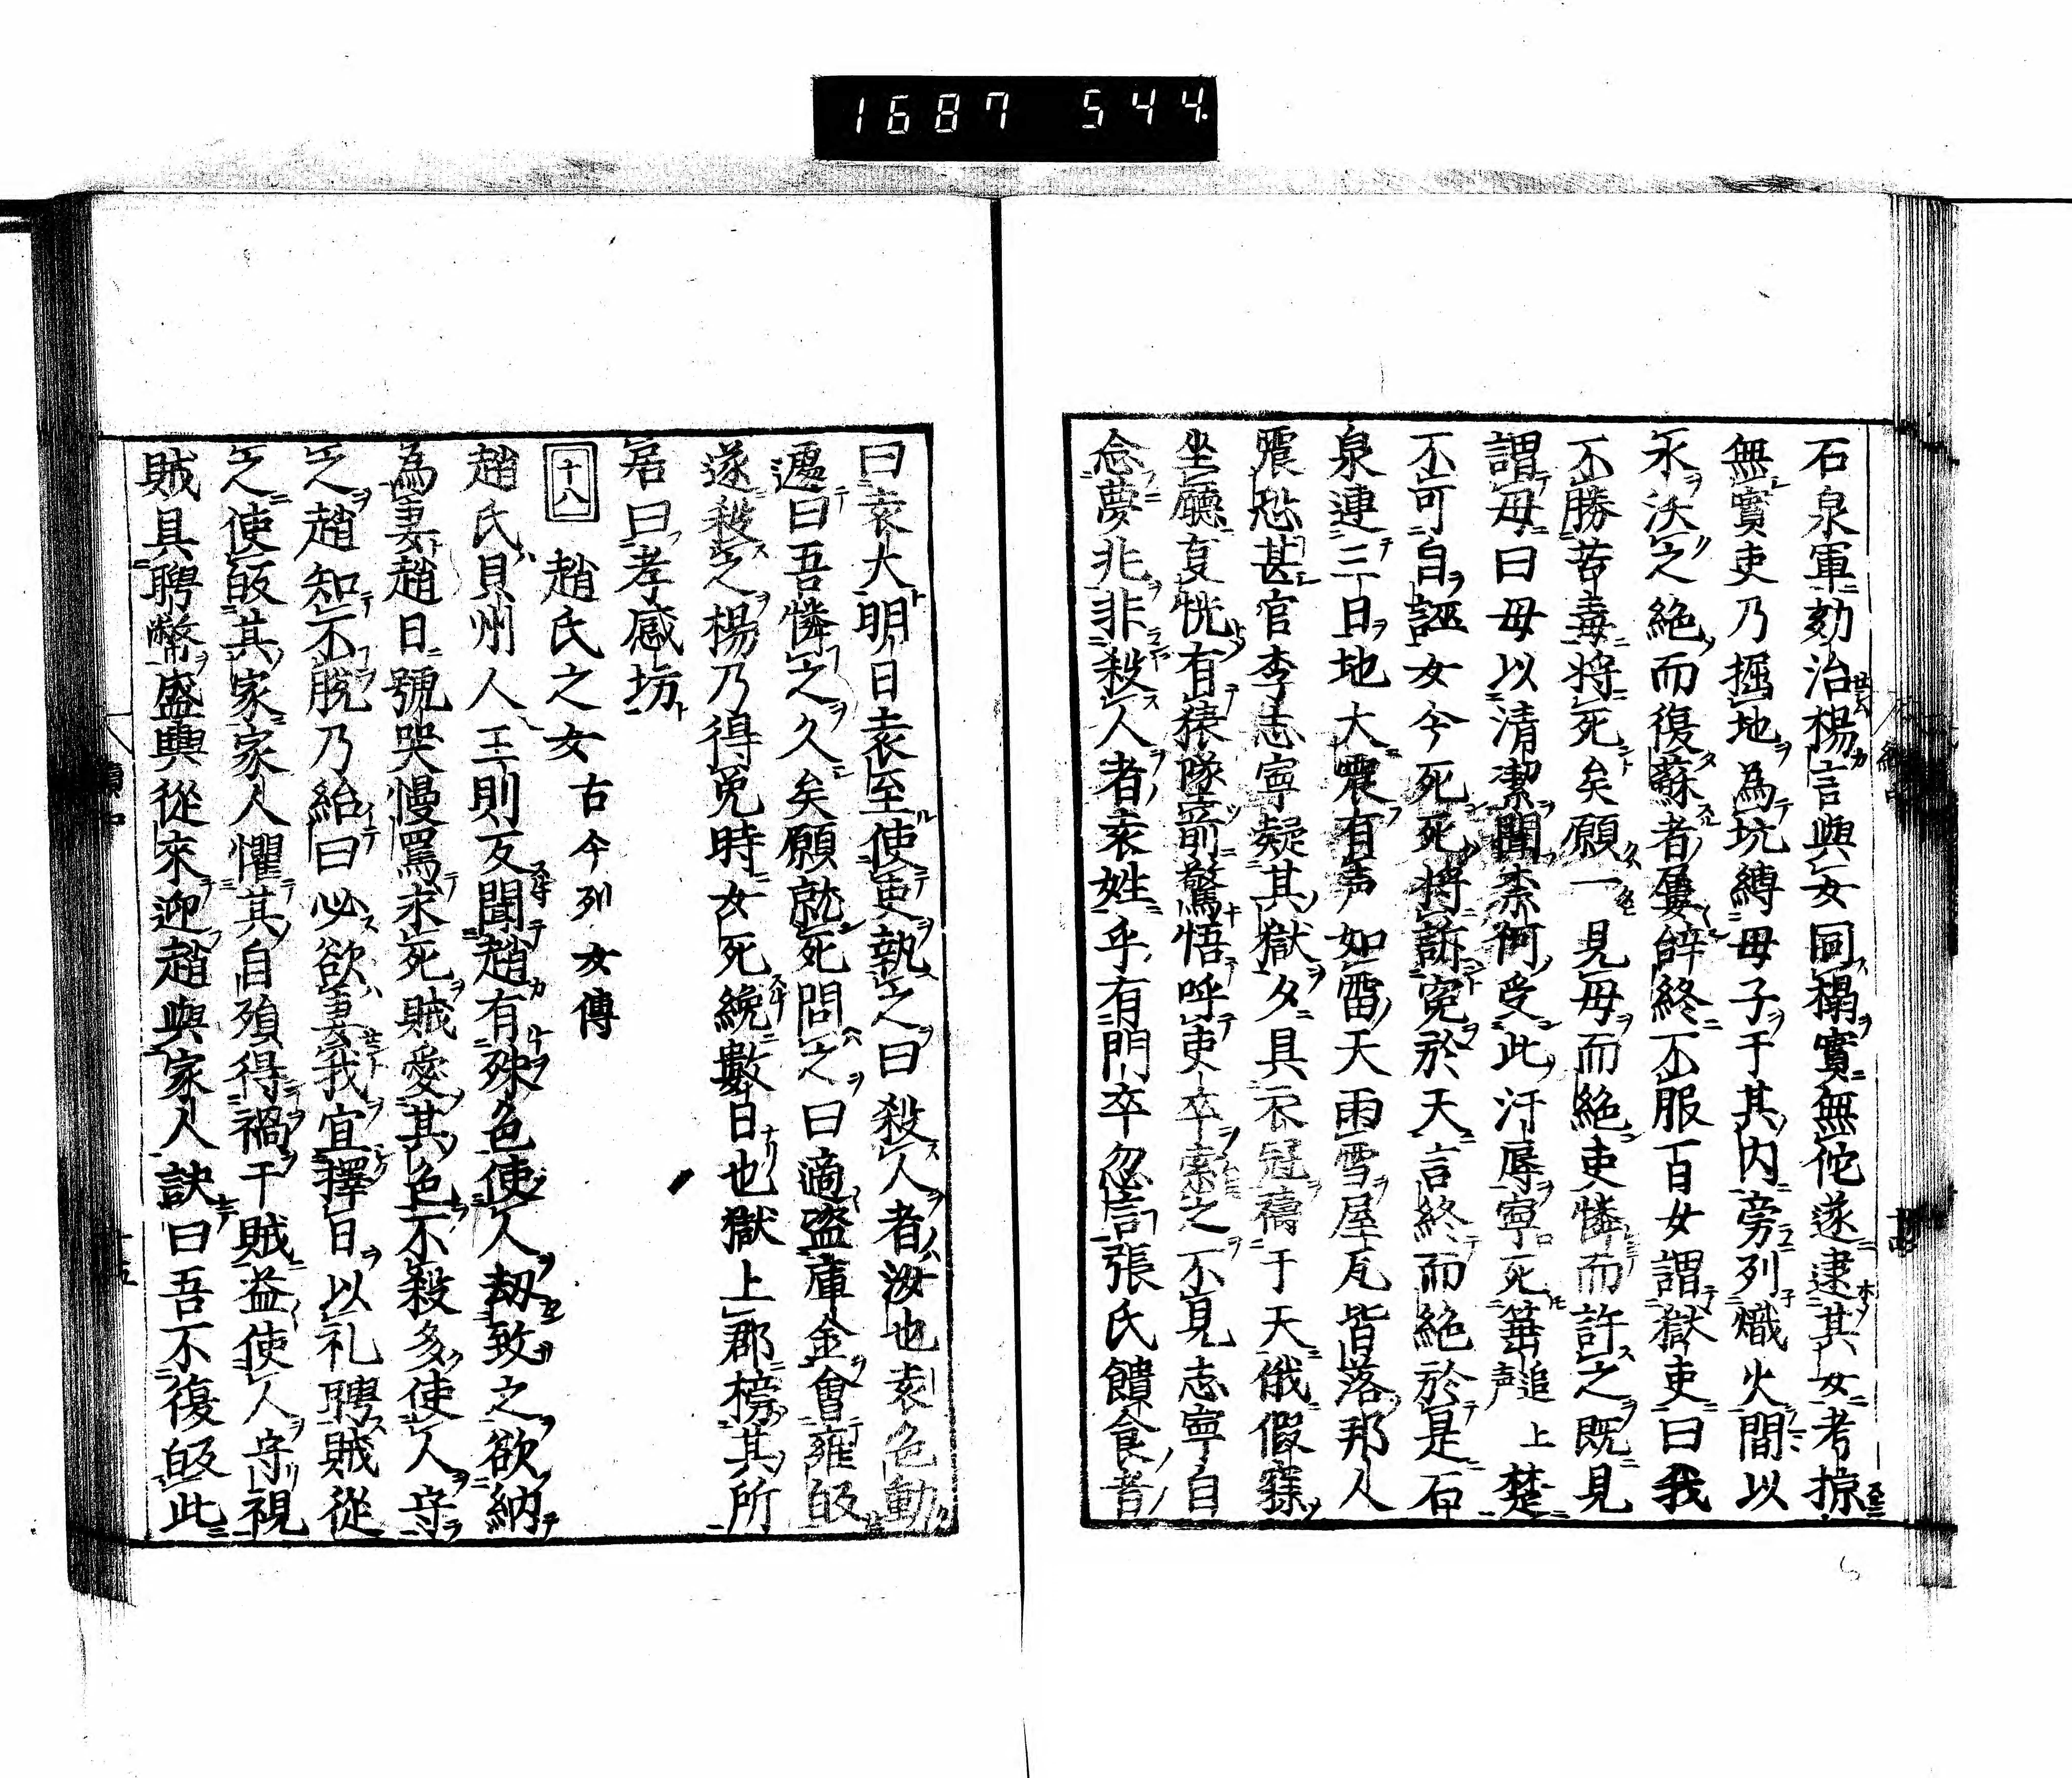 1687 544
石泉軍劾治楊言與女同榻實無佗遂逮其女考掠
無實吏乃掘地為坑縛母子于其内旁列熾火間以
水沃之絶而復蘇者屢辭終不服百女謂獄吏曰我
不勝苦毒将死矣願一見母而絶吏憐而許之既見
謂母曰母以清潔聞柰何受此汙辱寧死箠楚
不可自誣女今死死将訴冤於天言終而絶於是石
泉連三日地大震有声如雷天雨雪屋瓦皆落邦人
震恐甚官李志寧疑其獄夕具衣冠禱于天俄假寐
坐廳事恍有猿墜前驚悟呼吏卒索之不見志寧自
念夢兆非殺人者袁姓乎有門卒忽言張氏饋食者
曰袁大明日袁至使吏執之曰殺人者汝也袁色動
遽曰吾憐之久矣願就死問之曰適盗庫金會雍皈
遂殺之楊乃得免時女死纔數日也獄上郡榜其所
居曰孝感坊
十八 趙氏之女 古今列女傳
趙氏貝州人王則反聞趙有殊色使人刼致之欲納
為妻趙日號哭慢罵求死賊愛其色不殺多使人守
之趙知不脱乃紿曰必欲妻我宜擇日以礼聘賊從
之使皈其家家人懼其自殞得禍于賊益使人守視
賊具聘幣盛輿從來迎趙與家人訣曰吾不復皈此